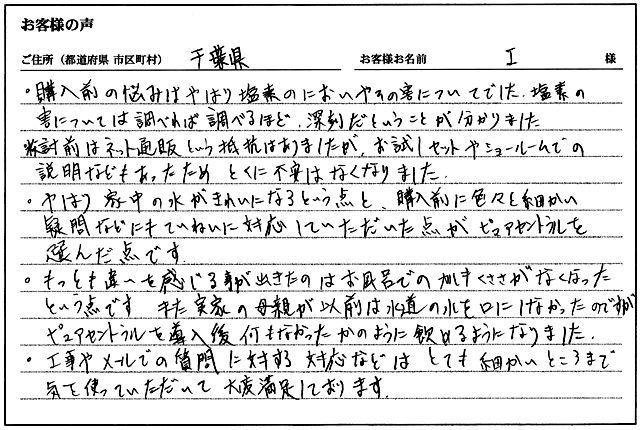 お客様の声
ご住所（都道府県 市区町村） 千葉県 お客様お名前 I 様
・購入前の悩みはやはり塩素のにおいやその害についてでした。塩素の
害については調べれば調べるほど、深刻だということが分かりました
検討前はネット通販という抵抗はありましたが、お試しセットやショールームでの
説明などもあったため とくに不安はなくなりました。
・やはり 家中の水がきれいになるという点と、購入前に色々と細かい
疑問などにもていねいに対応していただいた点がピュアセントラルを
選んだ点です。
・もっとも違いを感じる事が出きたのはお風呂でのカルキくささがなくなった
という点です また実家の母親が以前は水道の水を口にしなかったのですが
ピュアセントラルを導入後何もなかったかのように飲めるようになりました。
・工事やメールでの質問に対する対応などは とても細かいところまで
気を使っていただいて 大変満足しております。